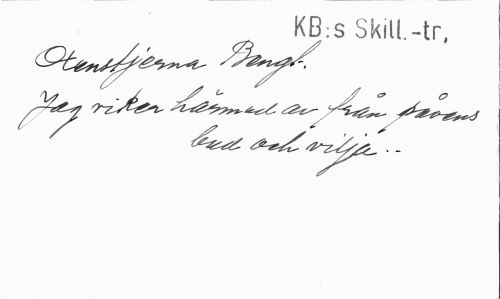 KB:s Skill.-tr,
Oxenstjerna Bengt.
Jag viker härmed av från påvens
bud och vilja..